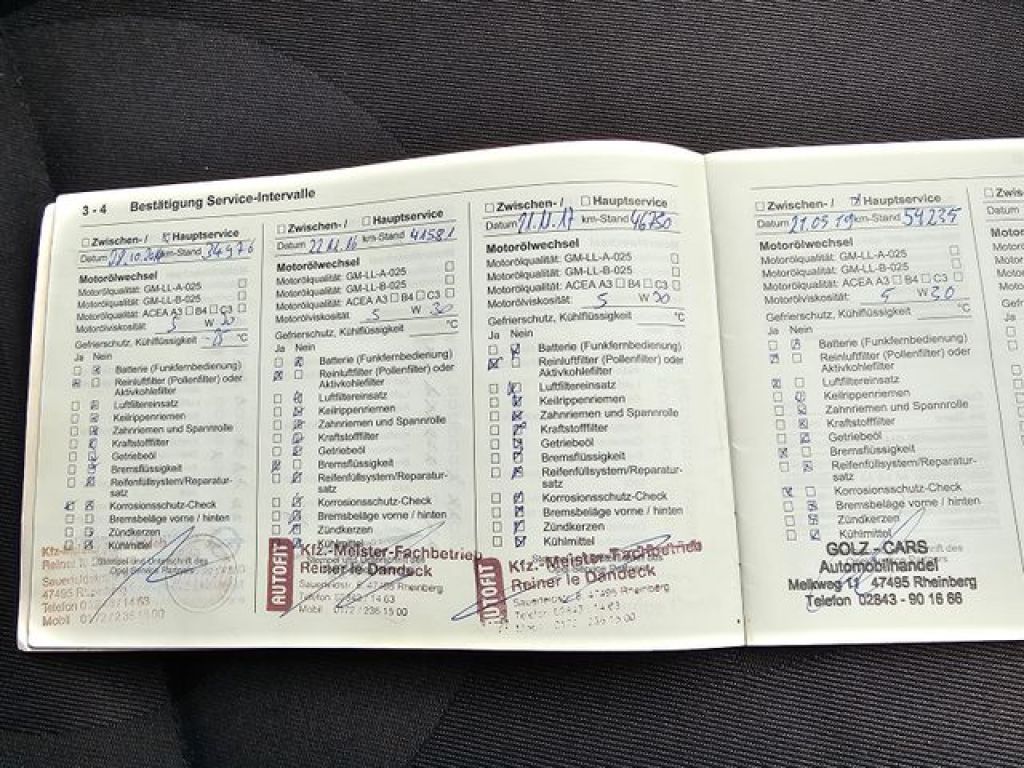 3 - 4 Bestätigung Service-Intervalle
Zwischen- / Hauptservice
Datum km-Stand 34976
Motorölwechsel
Motorölqualität: GM-LL-A-025
Motorölqualität: GM-LL-B-025
Motorölqualität: ACEA A3 B4 C3
Motorölviskosität: 5 W 30
Gefrierschutz, Kühlflüssigkeit °C
Ja Nein
Batterie (Funkfernbedienung)
Reinluftfilter (Pollenfilter) oder
Aktivkohlefilter
Luftfiltereinsatz
Keilrippenriemen
Zahnriemen und Spannrolle
Kraftstofffilter
Getriebeöl
Bremsflüssigkeit
Reifenfüllsystem/Reparatur-
satz
Korrosionsschutz-Check
Bremsbeläge vorne / hinten
Zündkerzen
Kühlmittel
47495
Telefon 14 63
Mobil 0172 / 236 15 00
Zwischen- / Hauptservice
Datum 22.11.16 km-Stand 41581
Motorölwechsel
Motorölqualität: GM-LL-A-025
Motorölqualität: GM-LL-B-025
Motorölqualität: ACEA A3 B4 C3
Motorölviskosität: 5 W 30
Gefrierschutz, Kühlflüssigkeit °C
Ja Nein
Batterie (Funkfernbedienung)
Reinluftfilter (Pollenfilter) oder
Aktivkohlefilter
Luftfiltereinsatz
Keilrippenriemen
Zahnriemen und Spannrolle
Kraftstofffilter
Getriebeöl
Bremsflüssigkeit
Reifenfüllsystem/Reparatur-
satz
Korrosionsschutz-Check
Bremsbeläge vorne / hinten
Zündkerzen
Kühlmittel
AUTOFIT
Kfz.-Meister-Fachbetrieb
Reiner le Dandeck
47495 Rheinberg
Telefon 02843 / 14 63
Mobil 0172 / 236 15 00
Zwischen- / Hauptservice
Datum 21.11.17 km-Stand 46750
Motorölwechsel
Motorölqualität: GM-LL-A-025
Motorölqualität: GM-LL-B-025
Motorölqualität: ACEA A3 B4 C3
Motorölviskosität: 5 W 30
Gefrierschutz, Kühlflüssigkeit °C
Ja Nein
Batterie (Funkfernbedienung)
Reinluftfilter (Pollenfilter) oder
Aktivkohlefilter
Luftfiltereinsatz
Keilrippenriemen
Zahnriemen und Spannrolle
Kraftstofffilter
Getriebeöl
Bremsflüssigkeit
Reifenfüllsystem/Reparatur-
satz
Korrosionsschutz-Check
Bremsbeläge vorne / hinten
Zündkerzen
Kühlmittel
AUTOFIT
Kfz.-Meister-Fachbetrieb
Reiner le Dandeck
47495 Rheinberg
Zwischen- / Hauptservice
Datum 21.05.19 km-Stand 54235
Motorölwechsel
Motorölqualität: GM-LL-A-025
Motorölqualität: GM-LL-B-025
Motorölqualität: ACEA A3 B4 C3
Motorölviskosität: 5 W 30
Gefrierschutz, Kühlflüssigkeit °C
Ja Nein
Batterie (Funkfernbedienung)
Reinluftfilter (Pollenfilter) oder
Aktivkohlefilter
Luftfiltereinsatz
Keilrippenriemen
Zahnriemen und Spannrolle
Kraftstofffilter
Getriebeöl
Bremsflüssigkeit
Reifenfüllsystem/Reparatur-
satz
Korrosionsschutz-Check
Bremsbeläge vorne / hinten
Zündkerzen
Kühlmittel
GOLZ - CARS
Automobilhandel
Melkweg 11 47495 Rheinberg
Telefon 02843 - 90 16 66